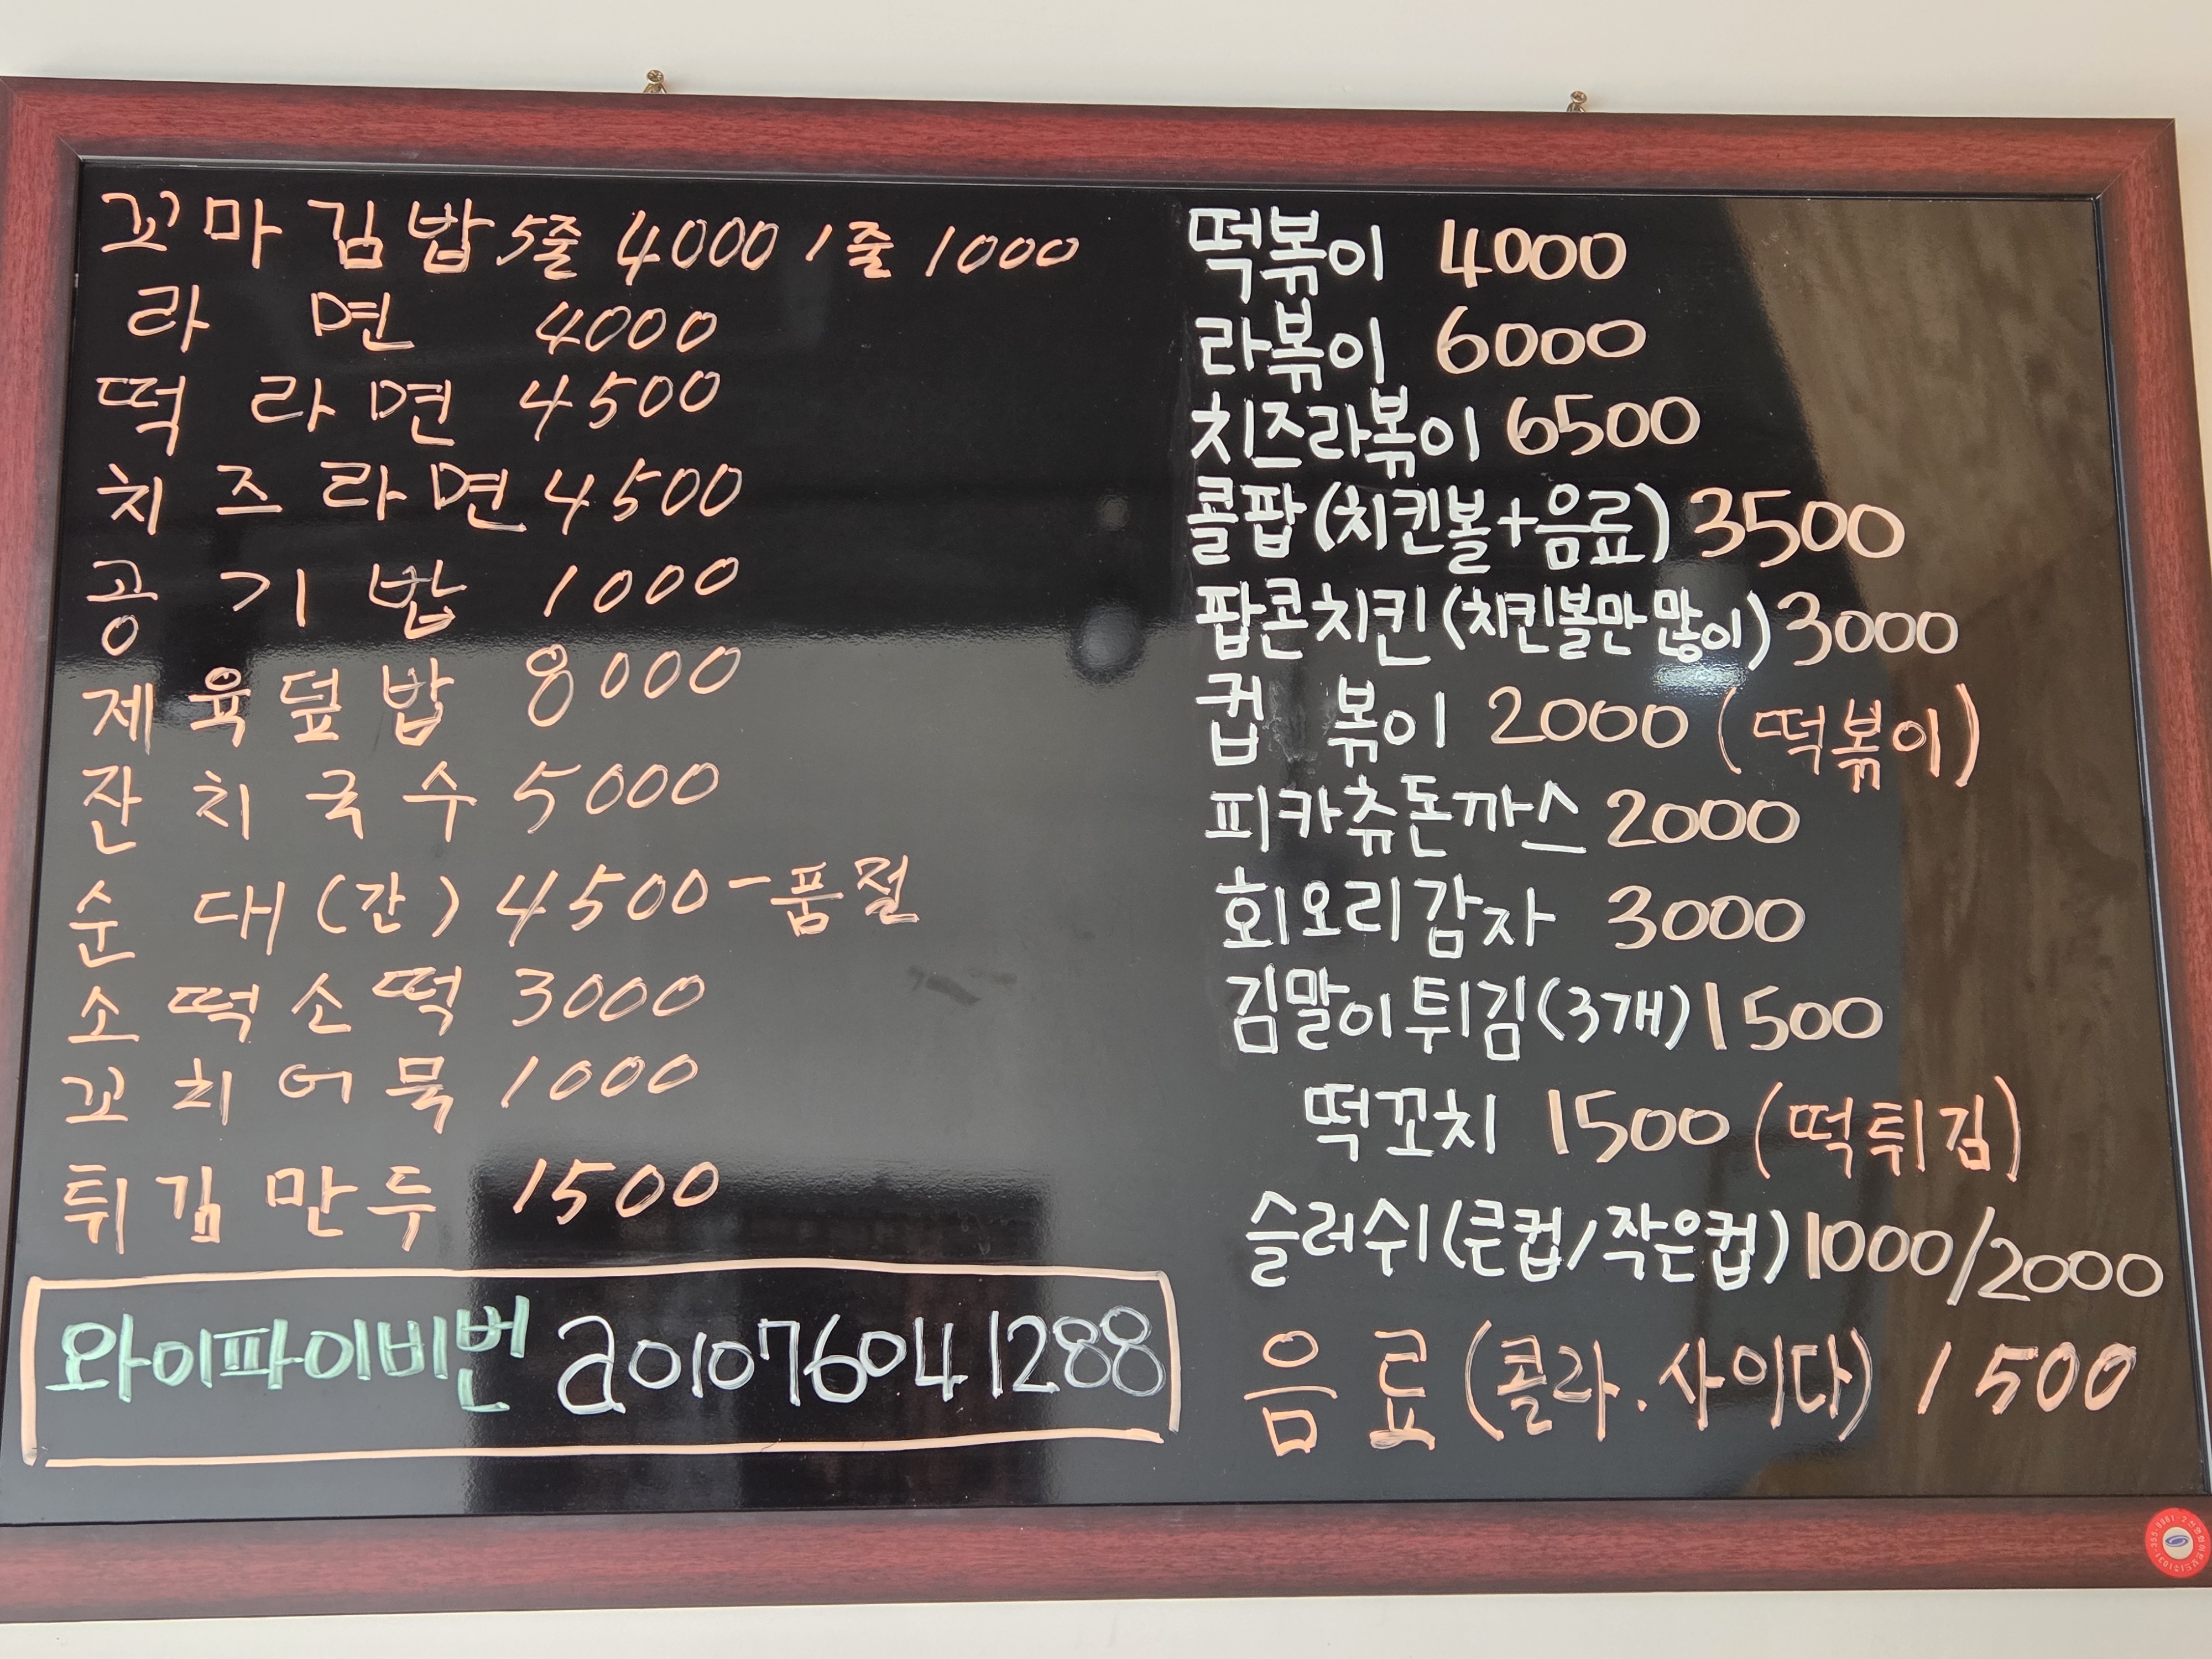 꼬마김밥 5줄 4000 1줄 1000
라면 4000
떡라면 4500
치즈라면 4500
공기밥 1000
제육덮밥 8000
잔치국수 5000
순대(간) 4500-품절
소떡소떡 3000
꼬치어묵 1000
튀김만두 1500
와이파이비번 a01076041288
떡볶이 4000
라볶이 6000
치즈라볶이 6500
콜팝(치킨볼+음료) 3500
팝콘치킨(치킨볼만 많이) 3000
컵볶이 2000 (떡볶이)
피카츄돈까스 2000
회오리감자 3000
김말이튀김(3개) 1500
떡꼬치 1500 (떡튀김)
슬러쉬(큰컵/작은컵) 1000/2000
음료(콜라.사이다) 1500